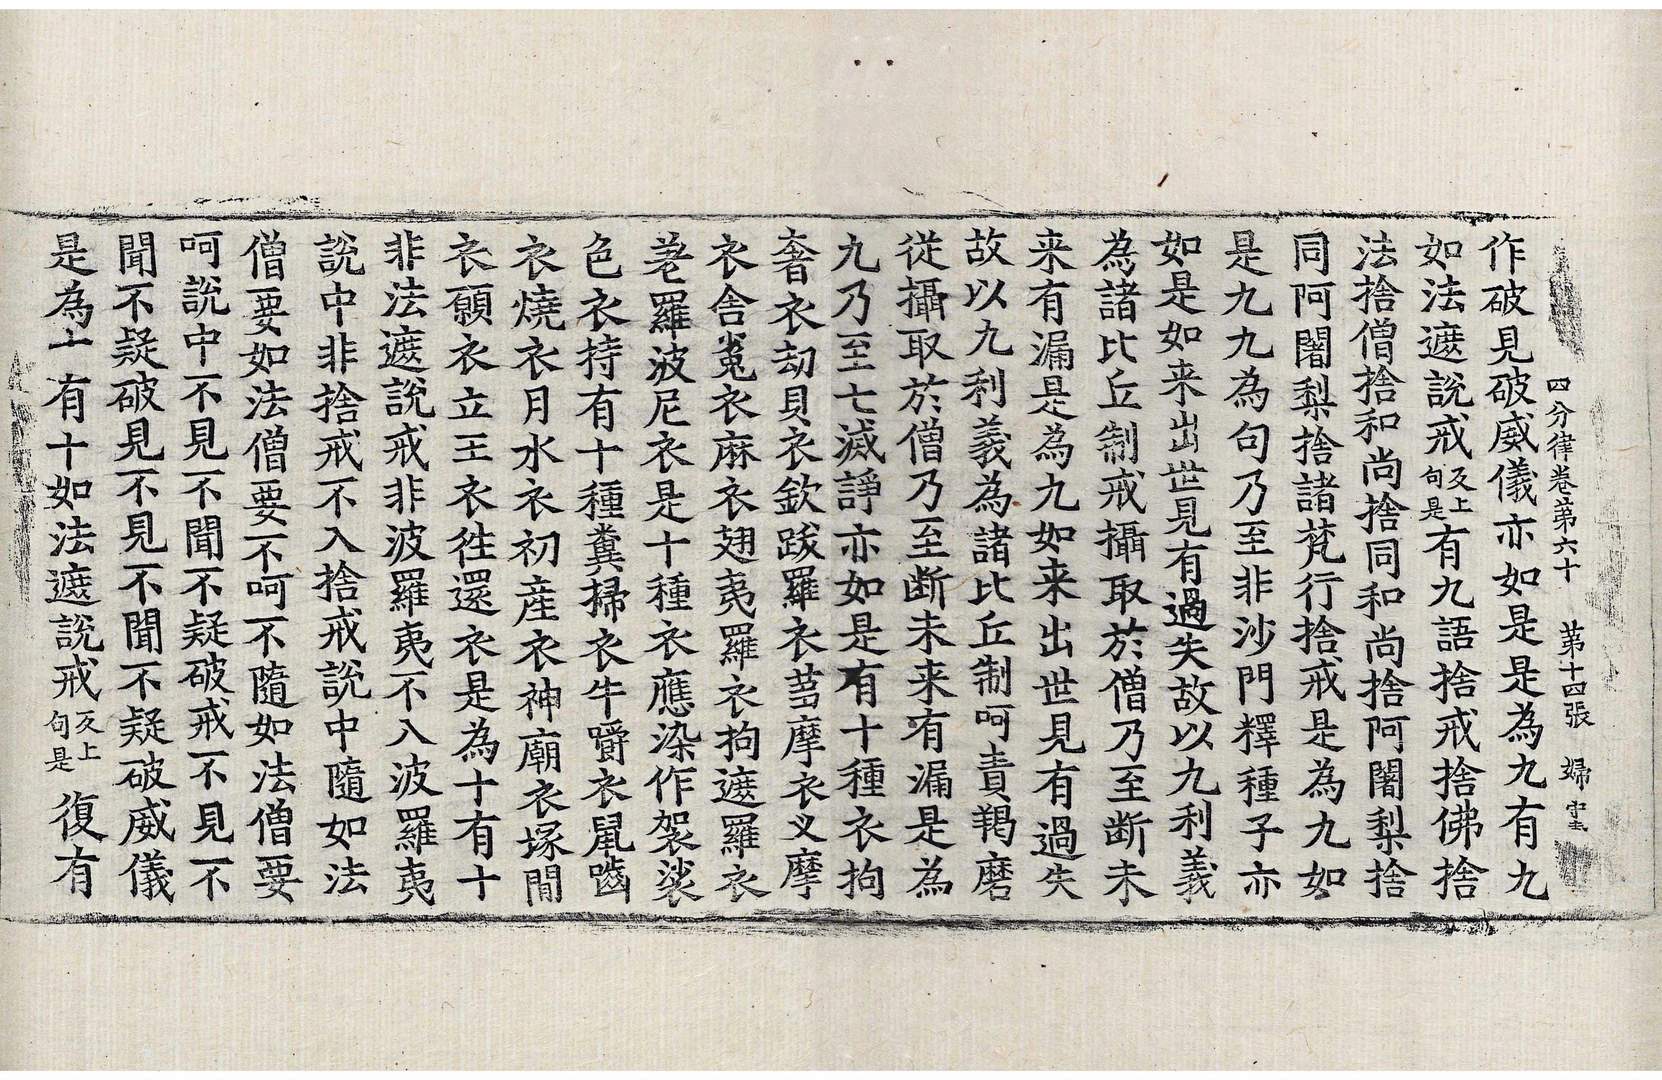 四分律卷第六十　第十四張　婦
作破見破威儀亦如是是為九有九
如法遮說戒反上句是有九語捨戒捨佛捨
法捨僧捨和尚捨同和尚捨阿闍梨捨
同阿闍梨捨諸梵行捨戒是為九如
是九九為句乃至非沙門釋種子亦
如是如来出世見有過失故以九利義
為諸比丘制戒攝取於僧乃至断未
来有漏是為九如来出世見有過失
故以九利義為諸比丘制呵責羯磨
従攝取於僧乃至断未来有漏是為
九乃至七滅諍亦如是有十種衣拘
奢衣劫貝衣欽跋羅衣芻摩衣义摩
衣舍㝹衣麻衣翅夷羅衣拘遮羅衣
羅波尼衣是十種衣應染作袈裟
色衣持有十種糞掃衣牛嚼衣鼠嚙
衣燒衣月水衣初産衣神廟衣塚間
衣願衣立王衣徃還衣是為十有十
非法遮說戒非波羅夷不入波羅夷
說中非捨戒不入捨戒說中隨如法
僧要如法僧要不呵不隨如法僧要
呵說中不見不聞不疑破戒不見不
聞不疑破見不見不聞不疑破威儀
是為十有十如法遮說戒反上句是復有